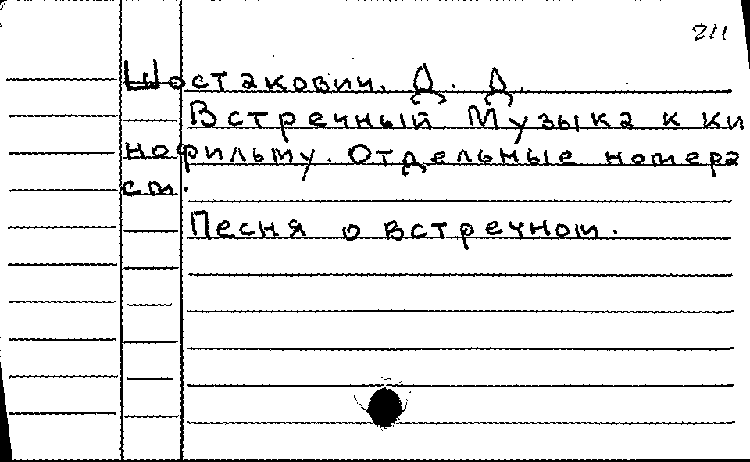 211
Шостакович. Д. Д.
Встречный Музыка к ки
нофильму. Отдельные номера
см.
Песня о встречном.